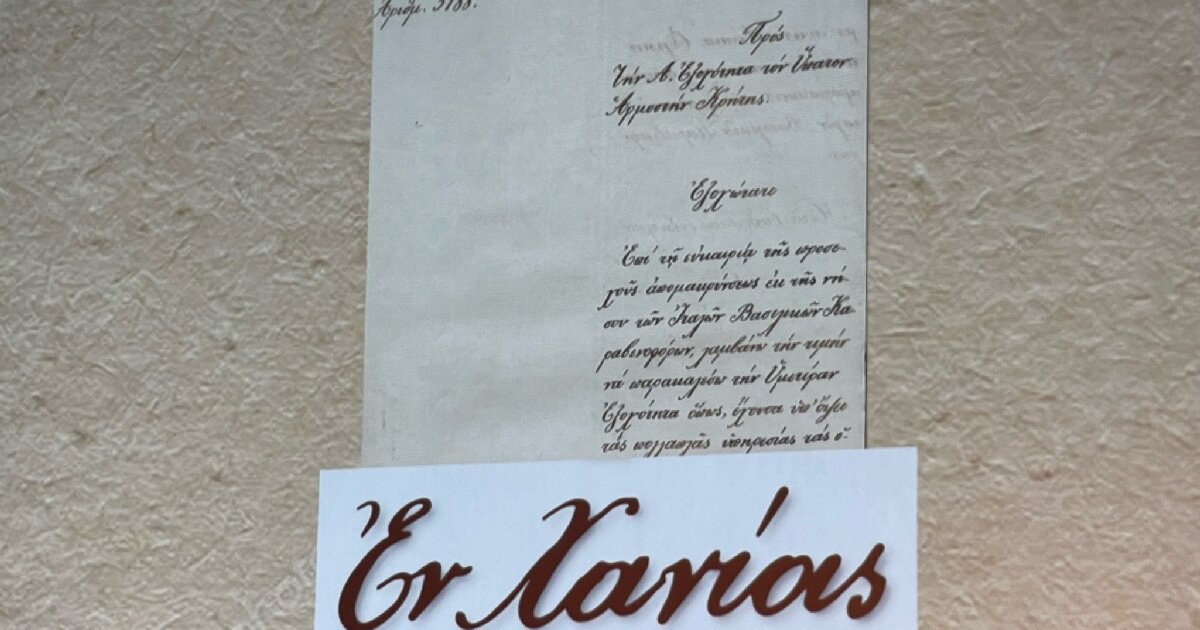 Ἀριθμ. 5188.
Πρός
Τήν Α. Ἐξοχότητα τόν Ὕπατον
Ἁρμοστήν Κρήτης
Ἐξοχώτατε
Ἐπί τῇ εὐκαιρίᾳ τῆς προσε-
χοῦς ἀπομακρύνσεως ἐκ τῆς νή-
σου τῶν Ἰταλῶν Βασιλικῶν Κα-
ραβινοφόρων, λαμβάνω τήν τιμήν
νά παρακαλέσω τήν Ὑμετέραν
Ἐξοχότητα ὅπως, ἔχουσα ὑπ' ὄψει
τάς πολλαπλᾶς ὑπηρεσίας τάς ὁ-
Ἐν Χανίοις